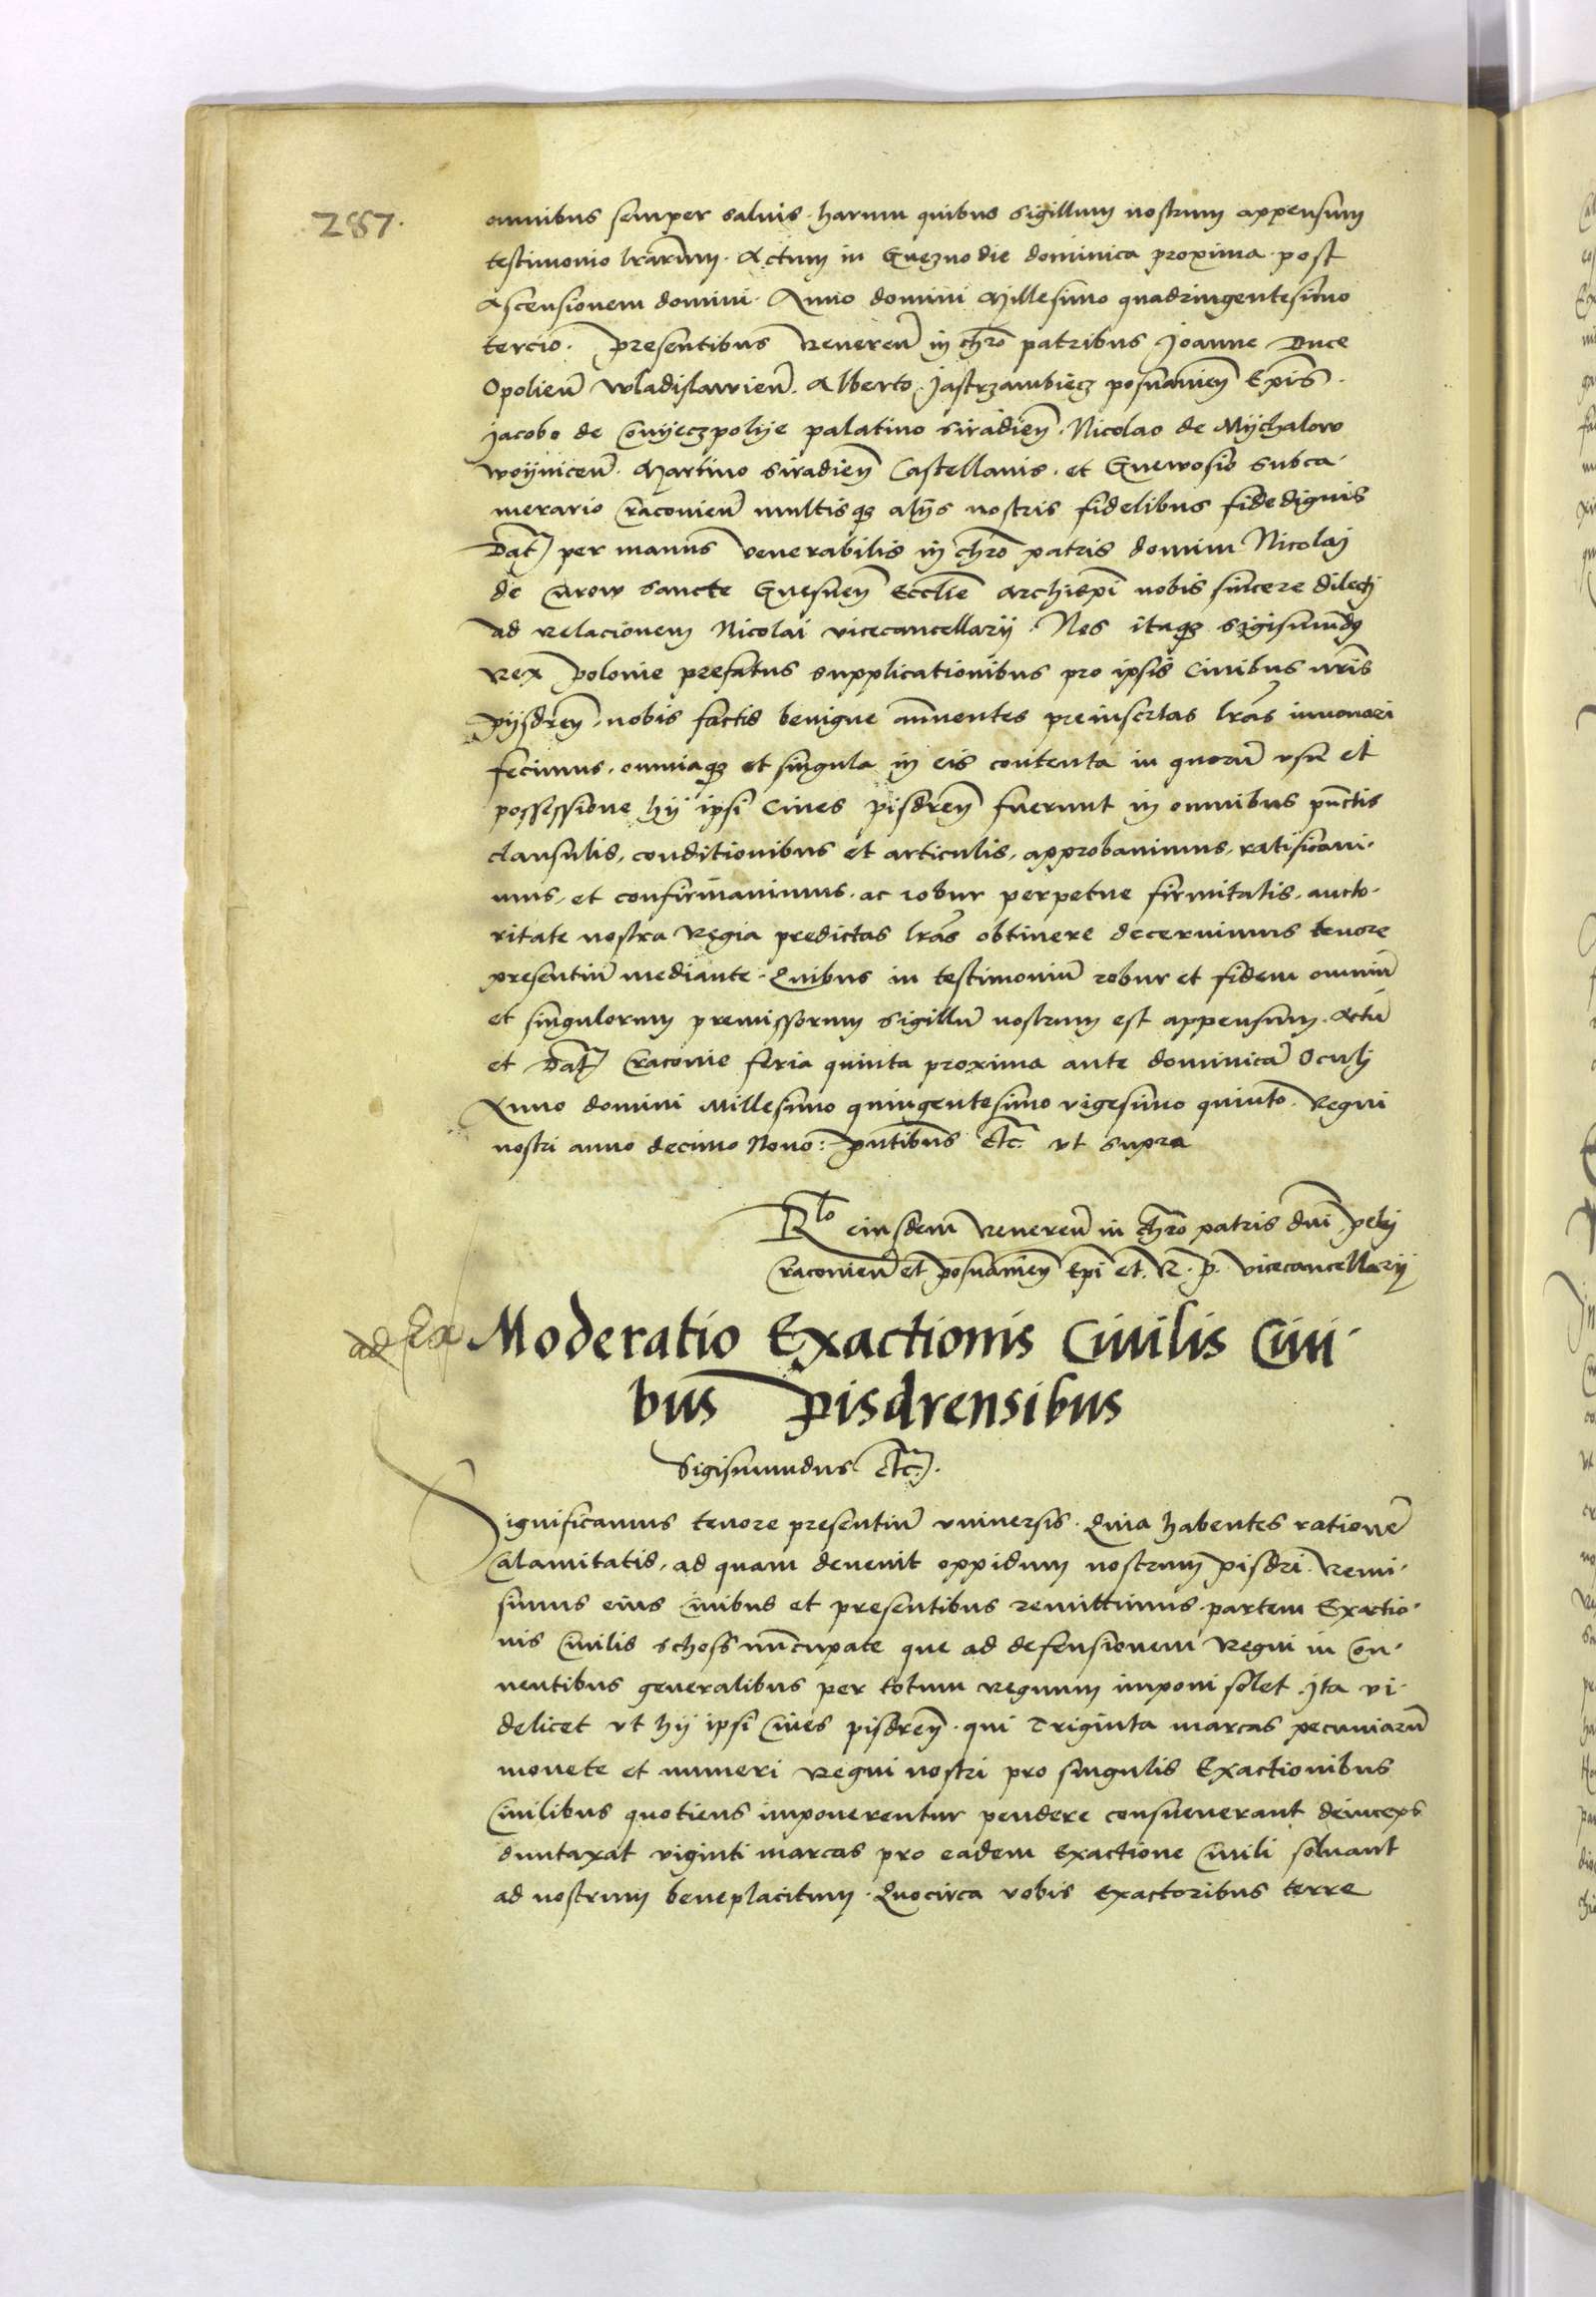 287.
omnibus semper saluis. harum quibus sigillum nostrum appensum
testimonio lrarum. Actum in Gnezno die dominica proxima post
Ascensionem domini. Anno domini Millesimo quadringentesimo
tercio. Presentibus Reueren̄ in chro patribus Joanne Duce
Opolien̄ Wladislawien̄. Alberto Jastrzambiecz posnanien̄ Ep̄is.
Jacobo de Conyeczpolye palatino Siradien̄. Nicolao de Mychalow
Woynicen̄. Martino Siradien̄ Castellanis. et Gnewosio Subca-
merario Cracouien̄ multisq3 alijs nostris fidelibus fidedignis
Dat̄ per manus venerabilis in chro patris domini Nicolai
de Curow sancte Gnesnen̄ Ecclie Archiep̄i nobis sincere dilecti
ad relacionem Nicolai vicecancellarij. Nos itaq3 Sigismundus
Rex Polonie prefatus supplicationibus pro ipsis Ciuibus nr̄is
Pijsdren̄. nobis factis benigne annuentes preinsertas lr̄as innouari
fecimus. omniaq3 et singula in eis contenta in quorū vsu et
possessione hij ipsi Ciues Pisdren̄ fuerunt in omnibus pūctis
clausulis, conditionibus et articulis, approbauimus, ratificaui-
mus, et confirmauimus. ac robur perpetue firmitatis. aucto-
ritate nostra Regia predictas lr̄as obtinere decernimus tenore
presentiū mediante. Quibus in testimoniū robur et fidem omniū
et singulorum premissorum sigillū nostrum est appensum. Actū
et Dat̄ Cracouie feria quinta proxima ante dominicā Oculi
Anno domini Millesimo quingentesimo vigesimo quinto. Regni
nostri anno decimo Nono: Pn̄tibus etc. vt supra
Rlo eiusdem Reueren̄ in chro patris dn̄i Petri
Cracouien̄ et Posnanien̄ Ep̄i et R. P. Vicecancellarij
Moderatio Exactionis Ciuilis Ciui-
bus Pisdrensibus
Sigismundus etc.
Significamus tenore presentiū vniuersis. Quia habentes rationē
Calamitatis, ad quam deuenit oppidum nostrum Pisdri. Remi-
simus eius Ciuibus et presentibus remittimus partem Exactio-
nis Ciuilis schoss nūcupate que ad defensionem Regni in Con-
uentibus generalibus per totum regnum imponi solet. Ita vi-
delicet vt hij ipsi Ciues Pisdren̄. qui Triginta marcas pecuniarū
monete et numeri Regni nostri pro singulis Exactionibus
Ciuilibus quotiens imponerentur pendere consueuerant deinceps
duntaxat viginti marcas pro eadem Exactione Ciuili soluant
ad nostrum beneplacitum. Quocirca vobis Exactoribus terre